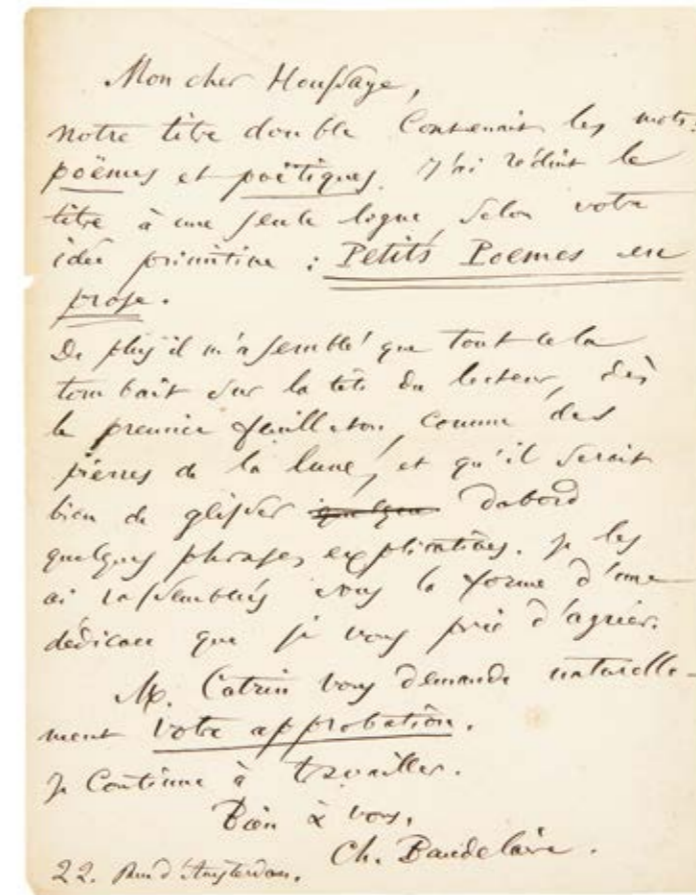 Mon cher Houssaye,
notre titre double Contenait les mots :
poëmes et poëtiques. J'ai réduit le
titre à une seule ligne, selon votre
idée primitive : Petits Poemes en
prose.
De plus il m'a semblé que tout cela
tombait sur la tête du lecteur, dès
le premier feuilleton, comme des
pierres de la lune, et qu'il serait
bien de glisser quelques dabord
quelques phrases explicatives. Je les
ai rassemblées sous la forme d'une
dédicace que je vous prie d'agréer.
M. Catrin vous demande naturelle-
ment votre approbation.
Je Continue à travailler.
Bien à vous.
Ch. Baudelaire.
22. Rue d'Amsterdam.